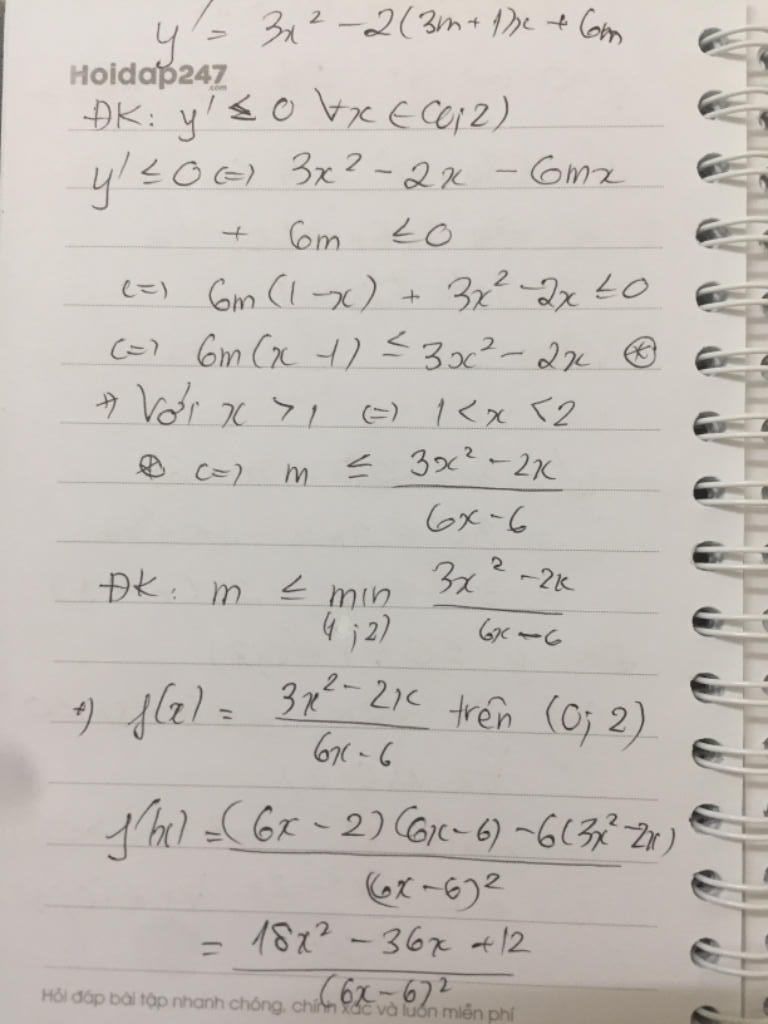 y' = 3x² - 2(3m + 1)x + 6m
Hoidap247
.com
ĐK: y' ≤ 0 ∀x ∈ (0; 2)
y' ≤ 0 <=> 3x² - 2x - 6mx
+ 6m ≤ 0
<=> 6m(1 - x) + 3x² - 2x ≤ 0
<=> 6m(x - 1) ≤ 3x² - 2x ⊛
+) Với x > 1 <=> 1 < x < 2
⊛ <=> m ≤ (3x² - 2x)/(6x - 6)
ĐK: m ≤ min (1; 2) (3x² - 2x)/(6x - 6)
+) f(x) = (3x² - 2x)/(6x - 6) trên (0; 2)
f'(x) = ((6x - 2)(6x - 6) - 6(3x² - 2x))/(6x - 6)²
= (18x² - 36x + 12)/(6x - 6)²
Hỏi đáp bài tập nhanh chóng, chính xác và luôn miễn phí